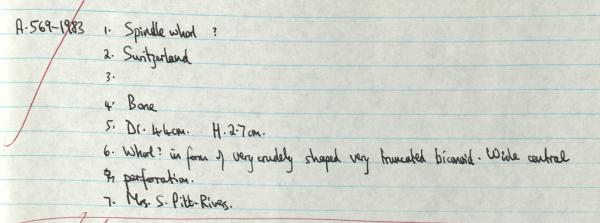 A.569-1983 1. Spindle whorl ?
2. Switzerland
3.
4. Bone
5. Dr. 4.4cm. H. 2.7cm.
6. Whorl? in form of very crudely shaped very truncated biconoid. Wide central
perforation.
7. Mrs. S. Pitt-Rivers.